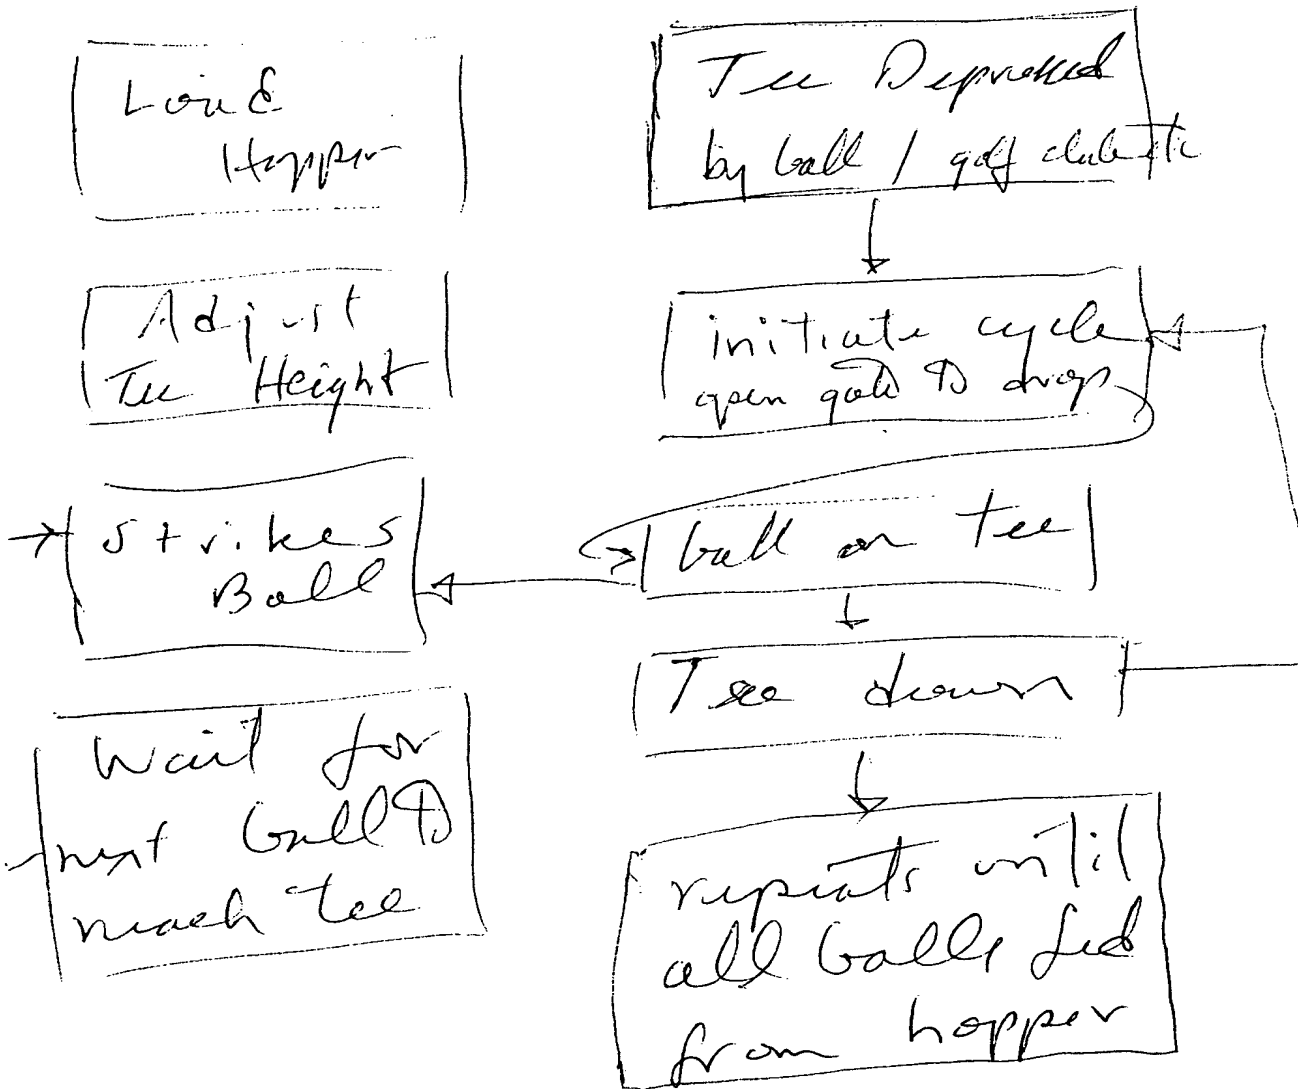 Load
Hopper
Adjust
Tee Height
Strikes
Ball
Wait for
next ball to
reach tee
Tee Depressed
by ball / golf club etc
initiate cycle
open gate to drop
ball on tee
Tee down
repeats until
all balls fed
from hopper